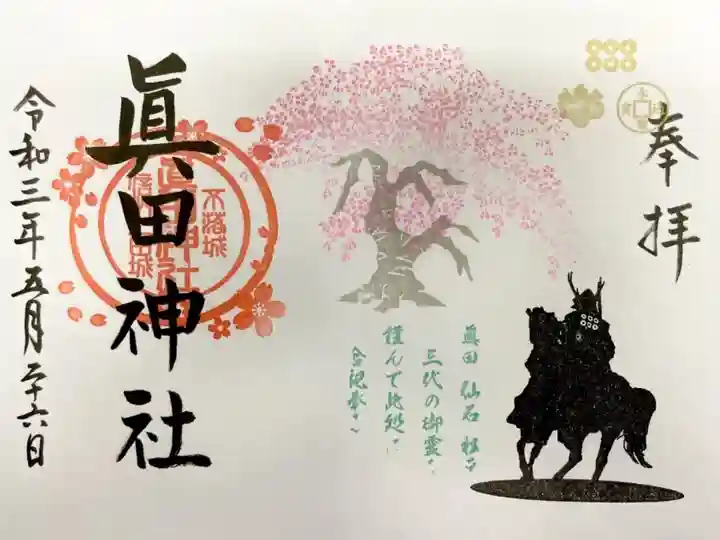 奉拝
眞田 仙石 松平
三代の御霊
謹んで此処に
合祀奉る
眞田神社
不落城
眞田神社
令和三年五月二十六日